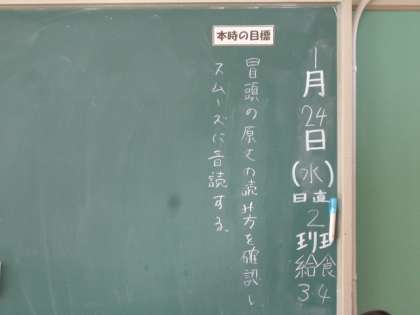 1月24日(水)
日直
2班
給食
3・4
本時の目標
冒頭の原文の読み方を確認し
スムーズに音読する。